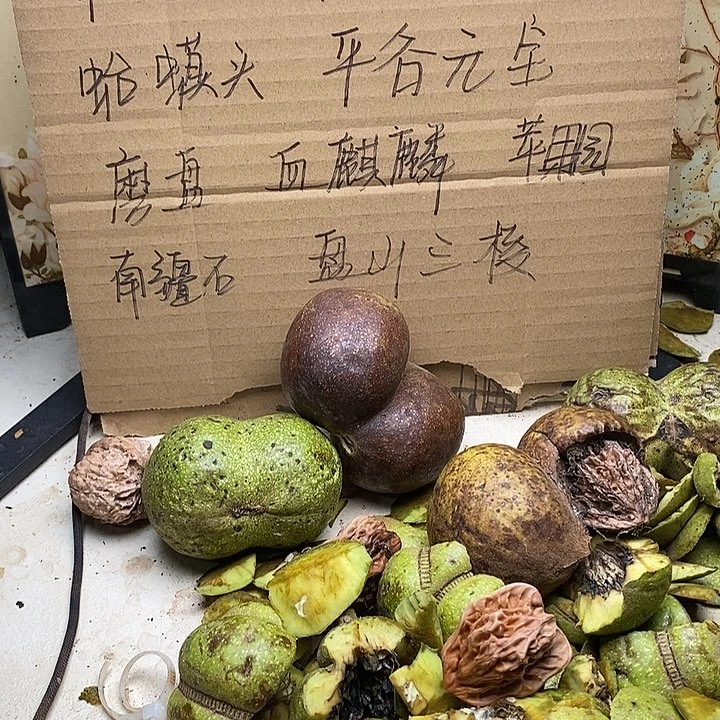 蛤蟆头 平谷元宝
磨盘 血麒麟 苹果园
南疆石 盘山三棱